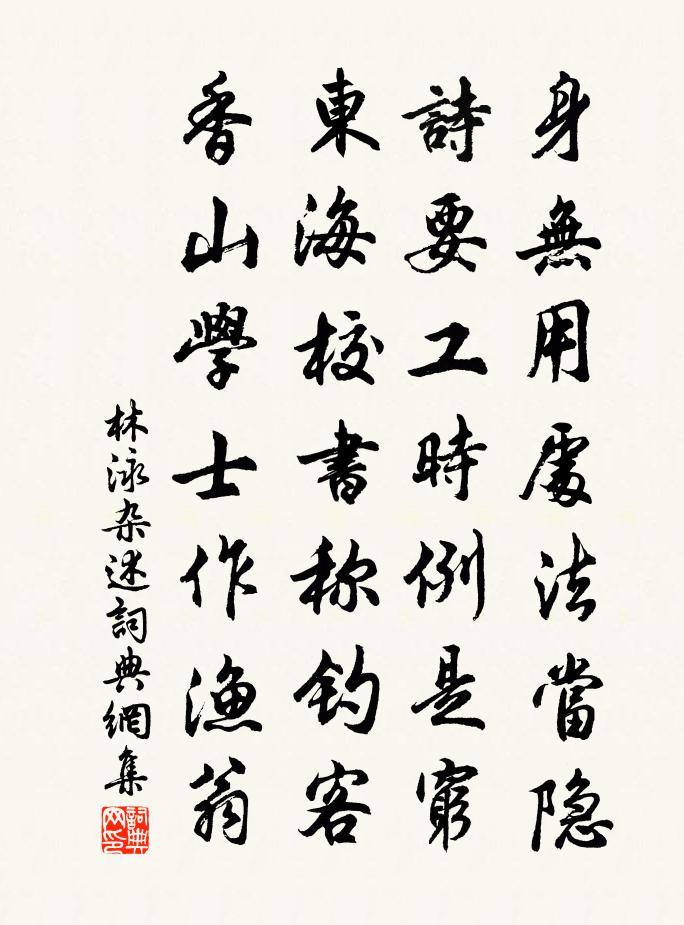 身無用處法當隐
詩要工時例是窮
東海校書称钓客
香山學士作漁翁
林泳杂述詞典網集
詞典网印